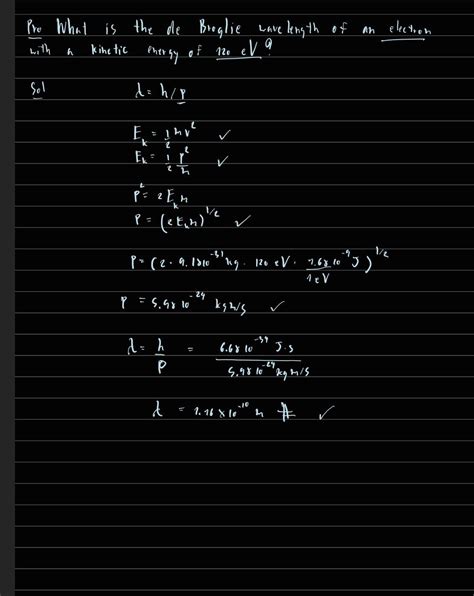 Pro What is the de Broglie wavelength of an electron
with a kinetic energy of 120 eV?
Sol λ = h/p
E_k = 1/2 mv² ✓
E_k = 1/2 p²/m ✓
p² = 2E_k m
p = (2E_k m)^1/2 ✓
p = (2 · 9.1x10^-31 kg · 120 eV · 1.6x10^-9 J / 1eV)^1/2
p = 5.9x10^-24 kg m/s ✓
λ = h/p = 6.6x10^-34 J·s / 5.9x10^-24 kg m/s
λ = 1.16x10^-10 m # ✓